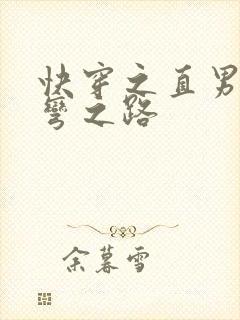 快穿之直男
弯之路
余暮雪